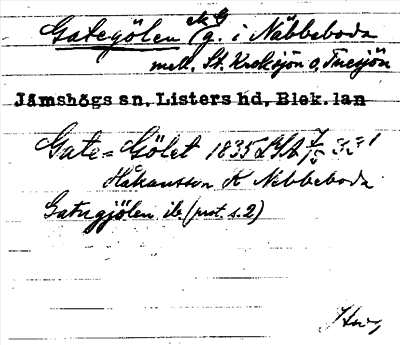 Gategölen g. i Näbbeboda
mell. St. Kroksjön o. Tuesjön
Jämshögs sn, Listers hd, Blek. län
Gate= Gölet 1835 LSA
Håkansson K Nebbeboda
Gatugjölen ib. (prot. s. 2)